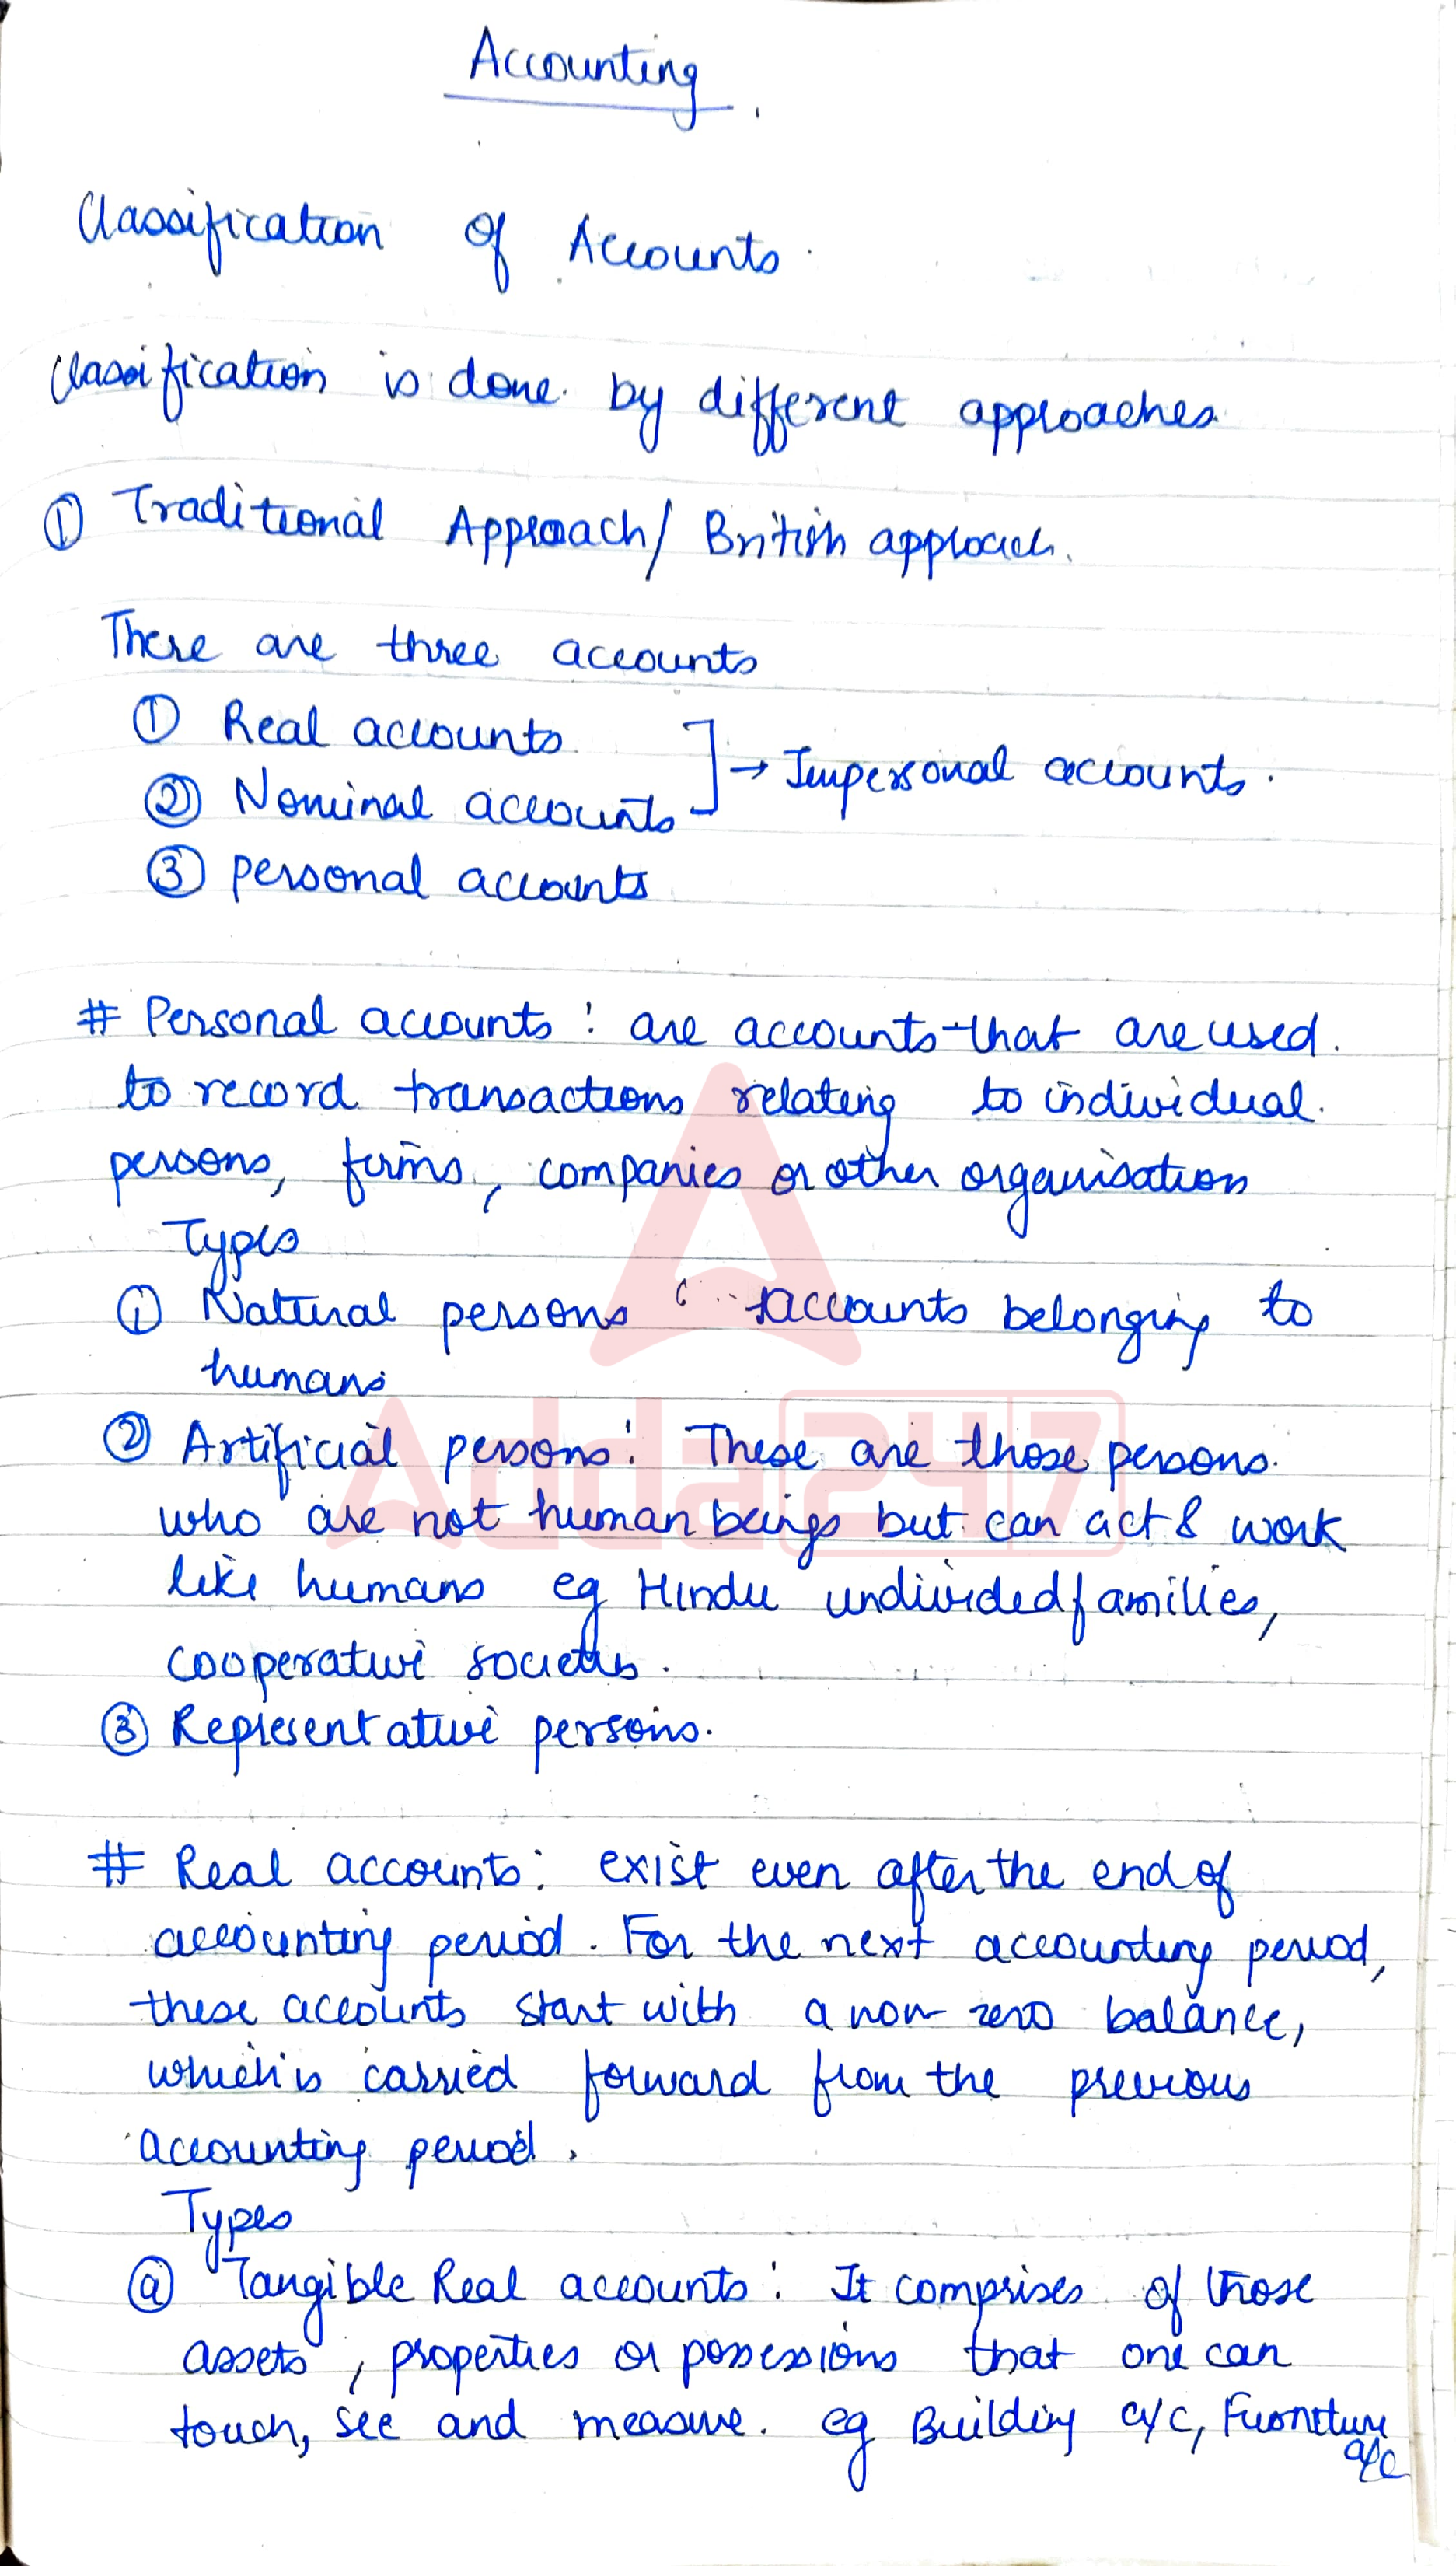 Accounting
Classification of Accounts.
Classification is done by different approaches
① Traditional Approach/ British approach.
There are three accounts
① Real accounts
② Nominal accounts → Impersonal accounts.
③ personal accounts
# Personal accounts : are accounts that are used
to record transactions relating to individual
persons, firms, companies or other organisation
Types
① Natural persons : accounts belonging to
humans
② Artificial persons : These are those persons
who are not human beings but can act & work
like humans eg Hindu undivided families,
cooperative societies.
③ Representative persons.
# Real accounts : exist even after the end of
accounting period. For the next accounting period,
these accounts start with a non zero balance,
which is carried forward from the previous
accounting period.
Types
ⓐ Tangible Real accounts : It comprises of those
assets, properties or possessions that one can
touch, see and measure. eg Building a/c, Furniture
a/c
Adda247